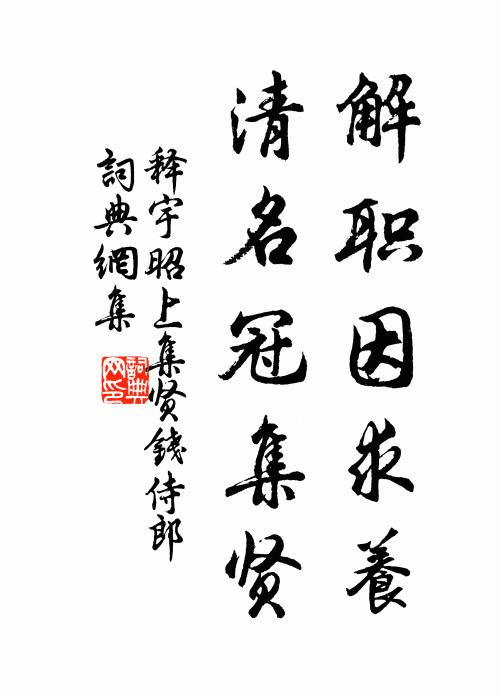 解职因求養
清名冠集贤
释宇昭上集贤錢侍郎
詞典網集
詞典
网印